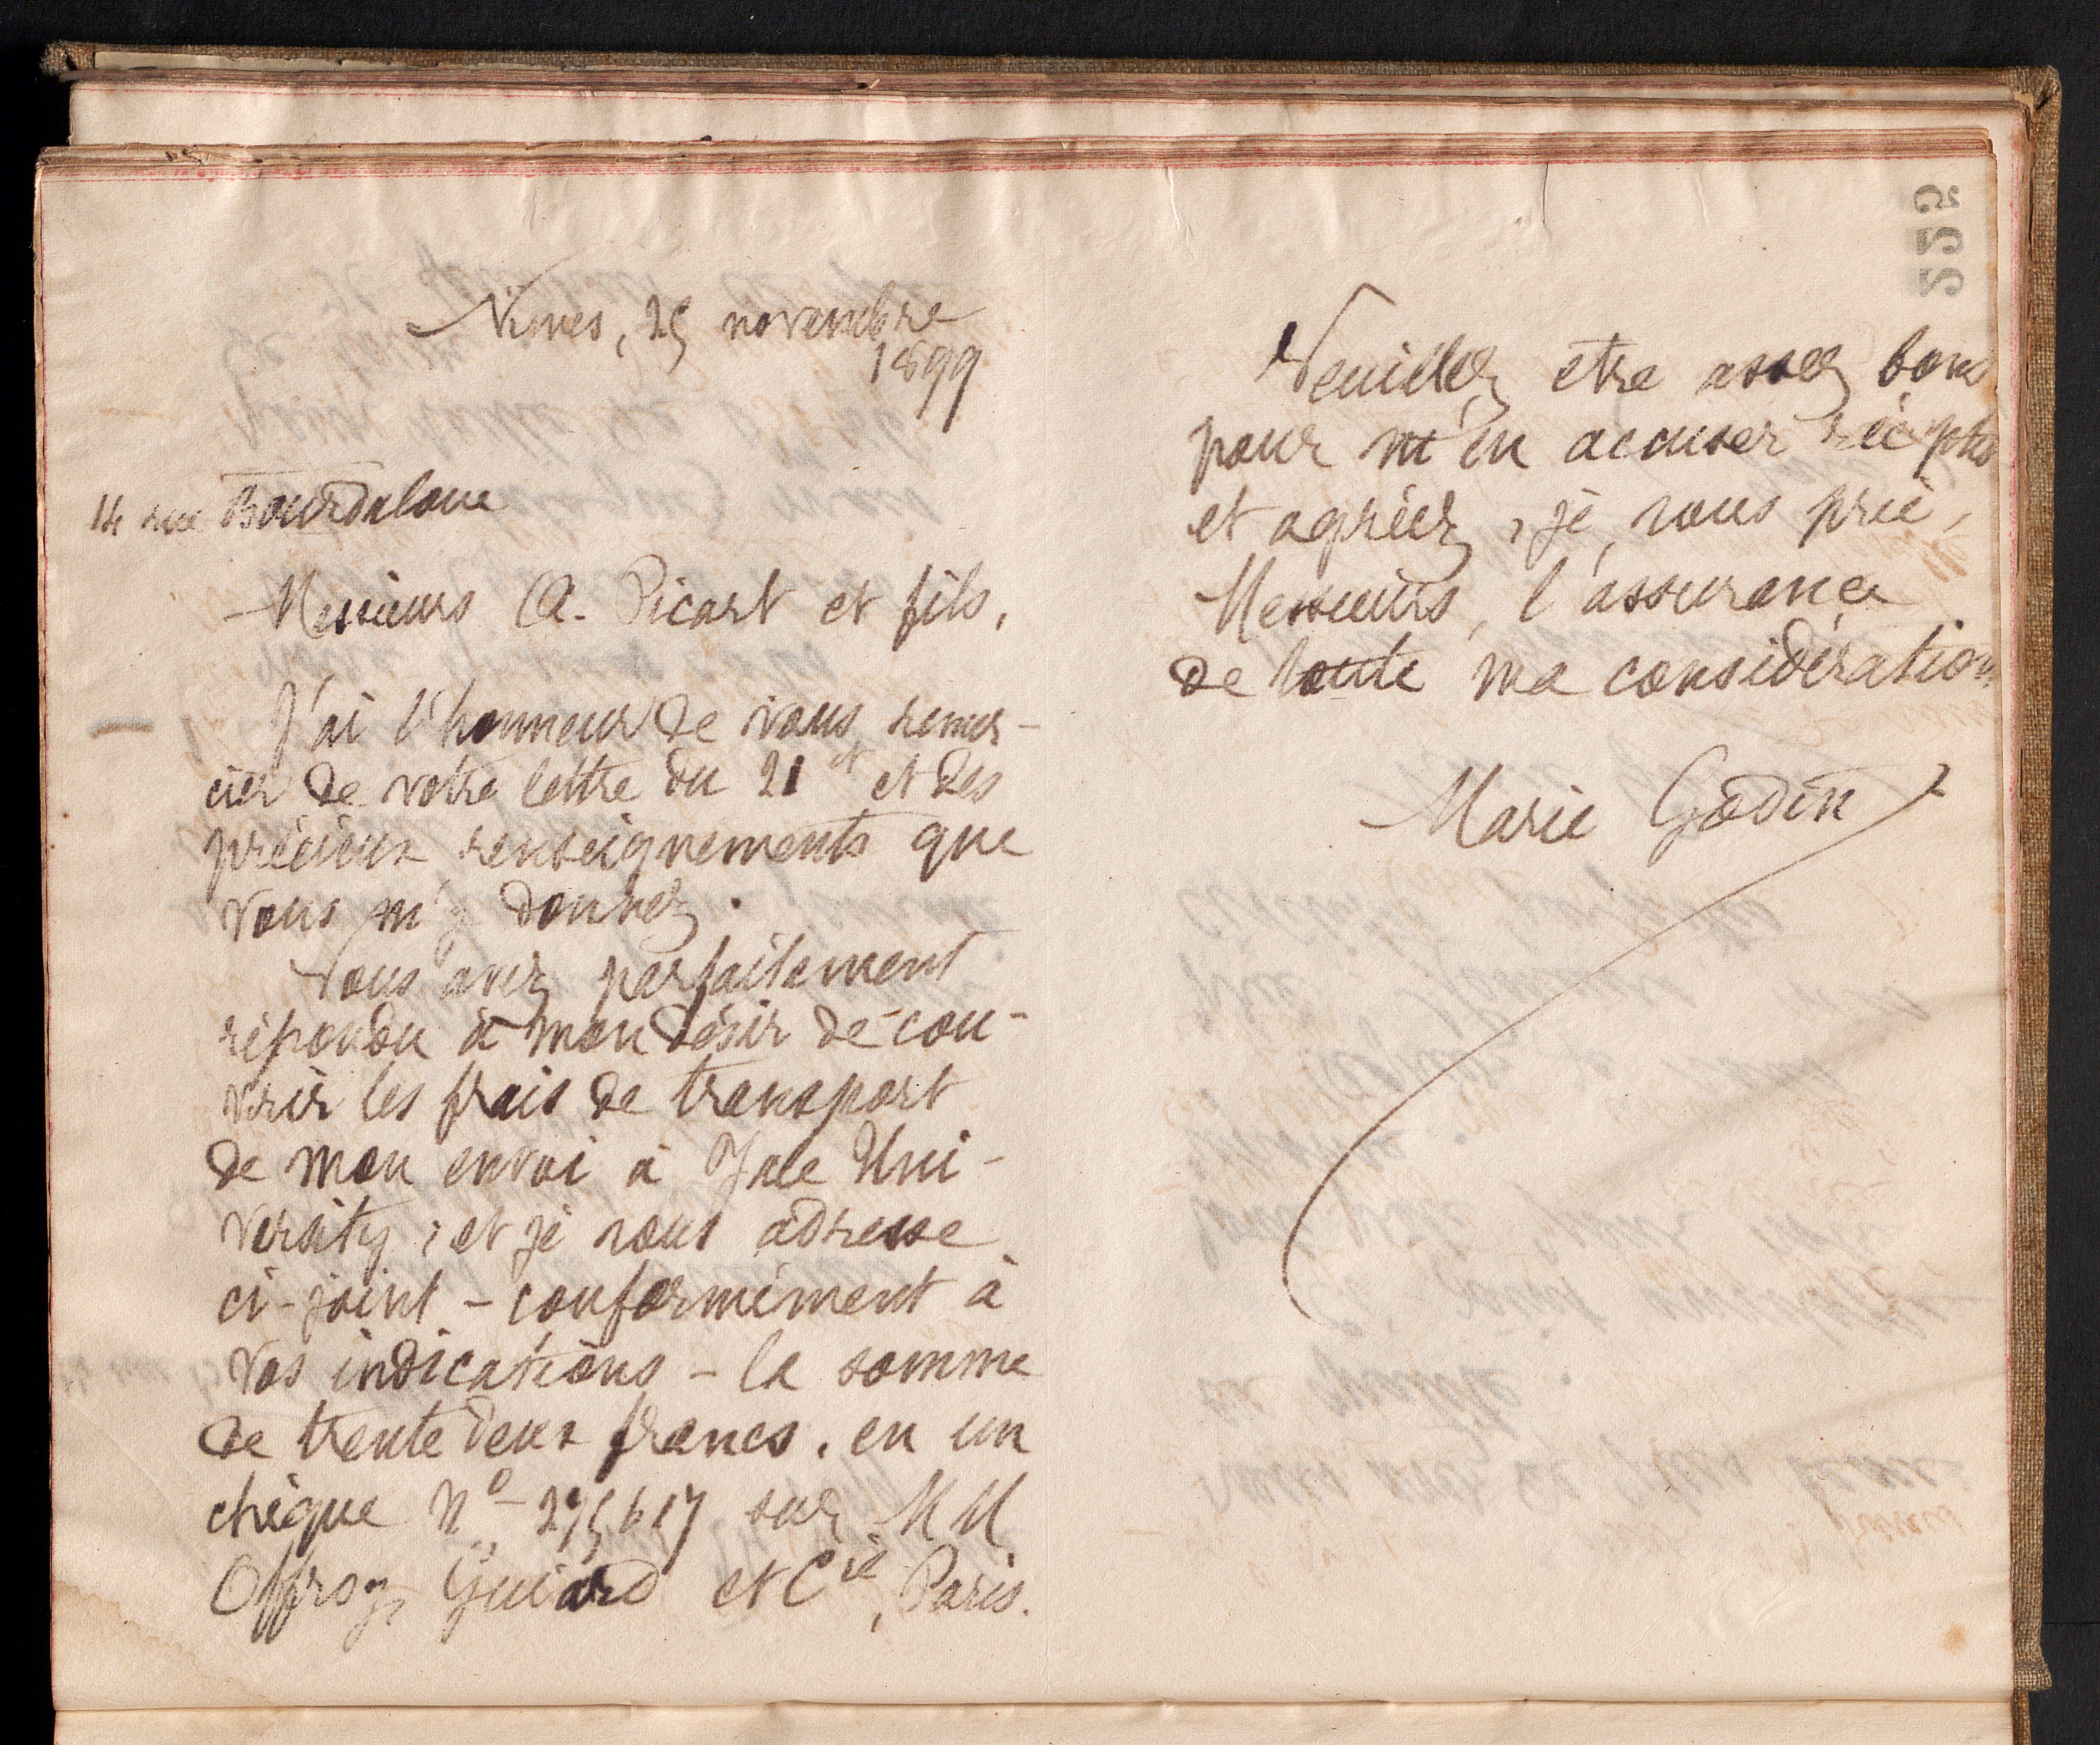 Nimes, 25 novembre
1899
14 rue Bourdaloue
Messieurs A. Picart et fils,
J'ai l'honneur de vous remer-
cier de votre lettre du 21 ct et des
précieux renseignements que
vous m'y donnez.
Vous avez parfaitement
répondu à mon désir de cou-
vrir les frais de transport
de mon envoi à Yale Uni-
versity ; et je vous adresse
ci-joint - conformément à
vos indications - la somme
de trente deux francs, en un
chèque No 275617 sur MM
Offroy, Guiard et Cie, Paris.
Veuillez être assez bons
pour m'en accuser réception
et agréez, je vous prie,
Messieurs, l'assurance
de toute ma considération
Marie Godin
555